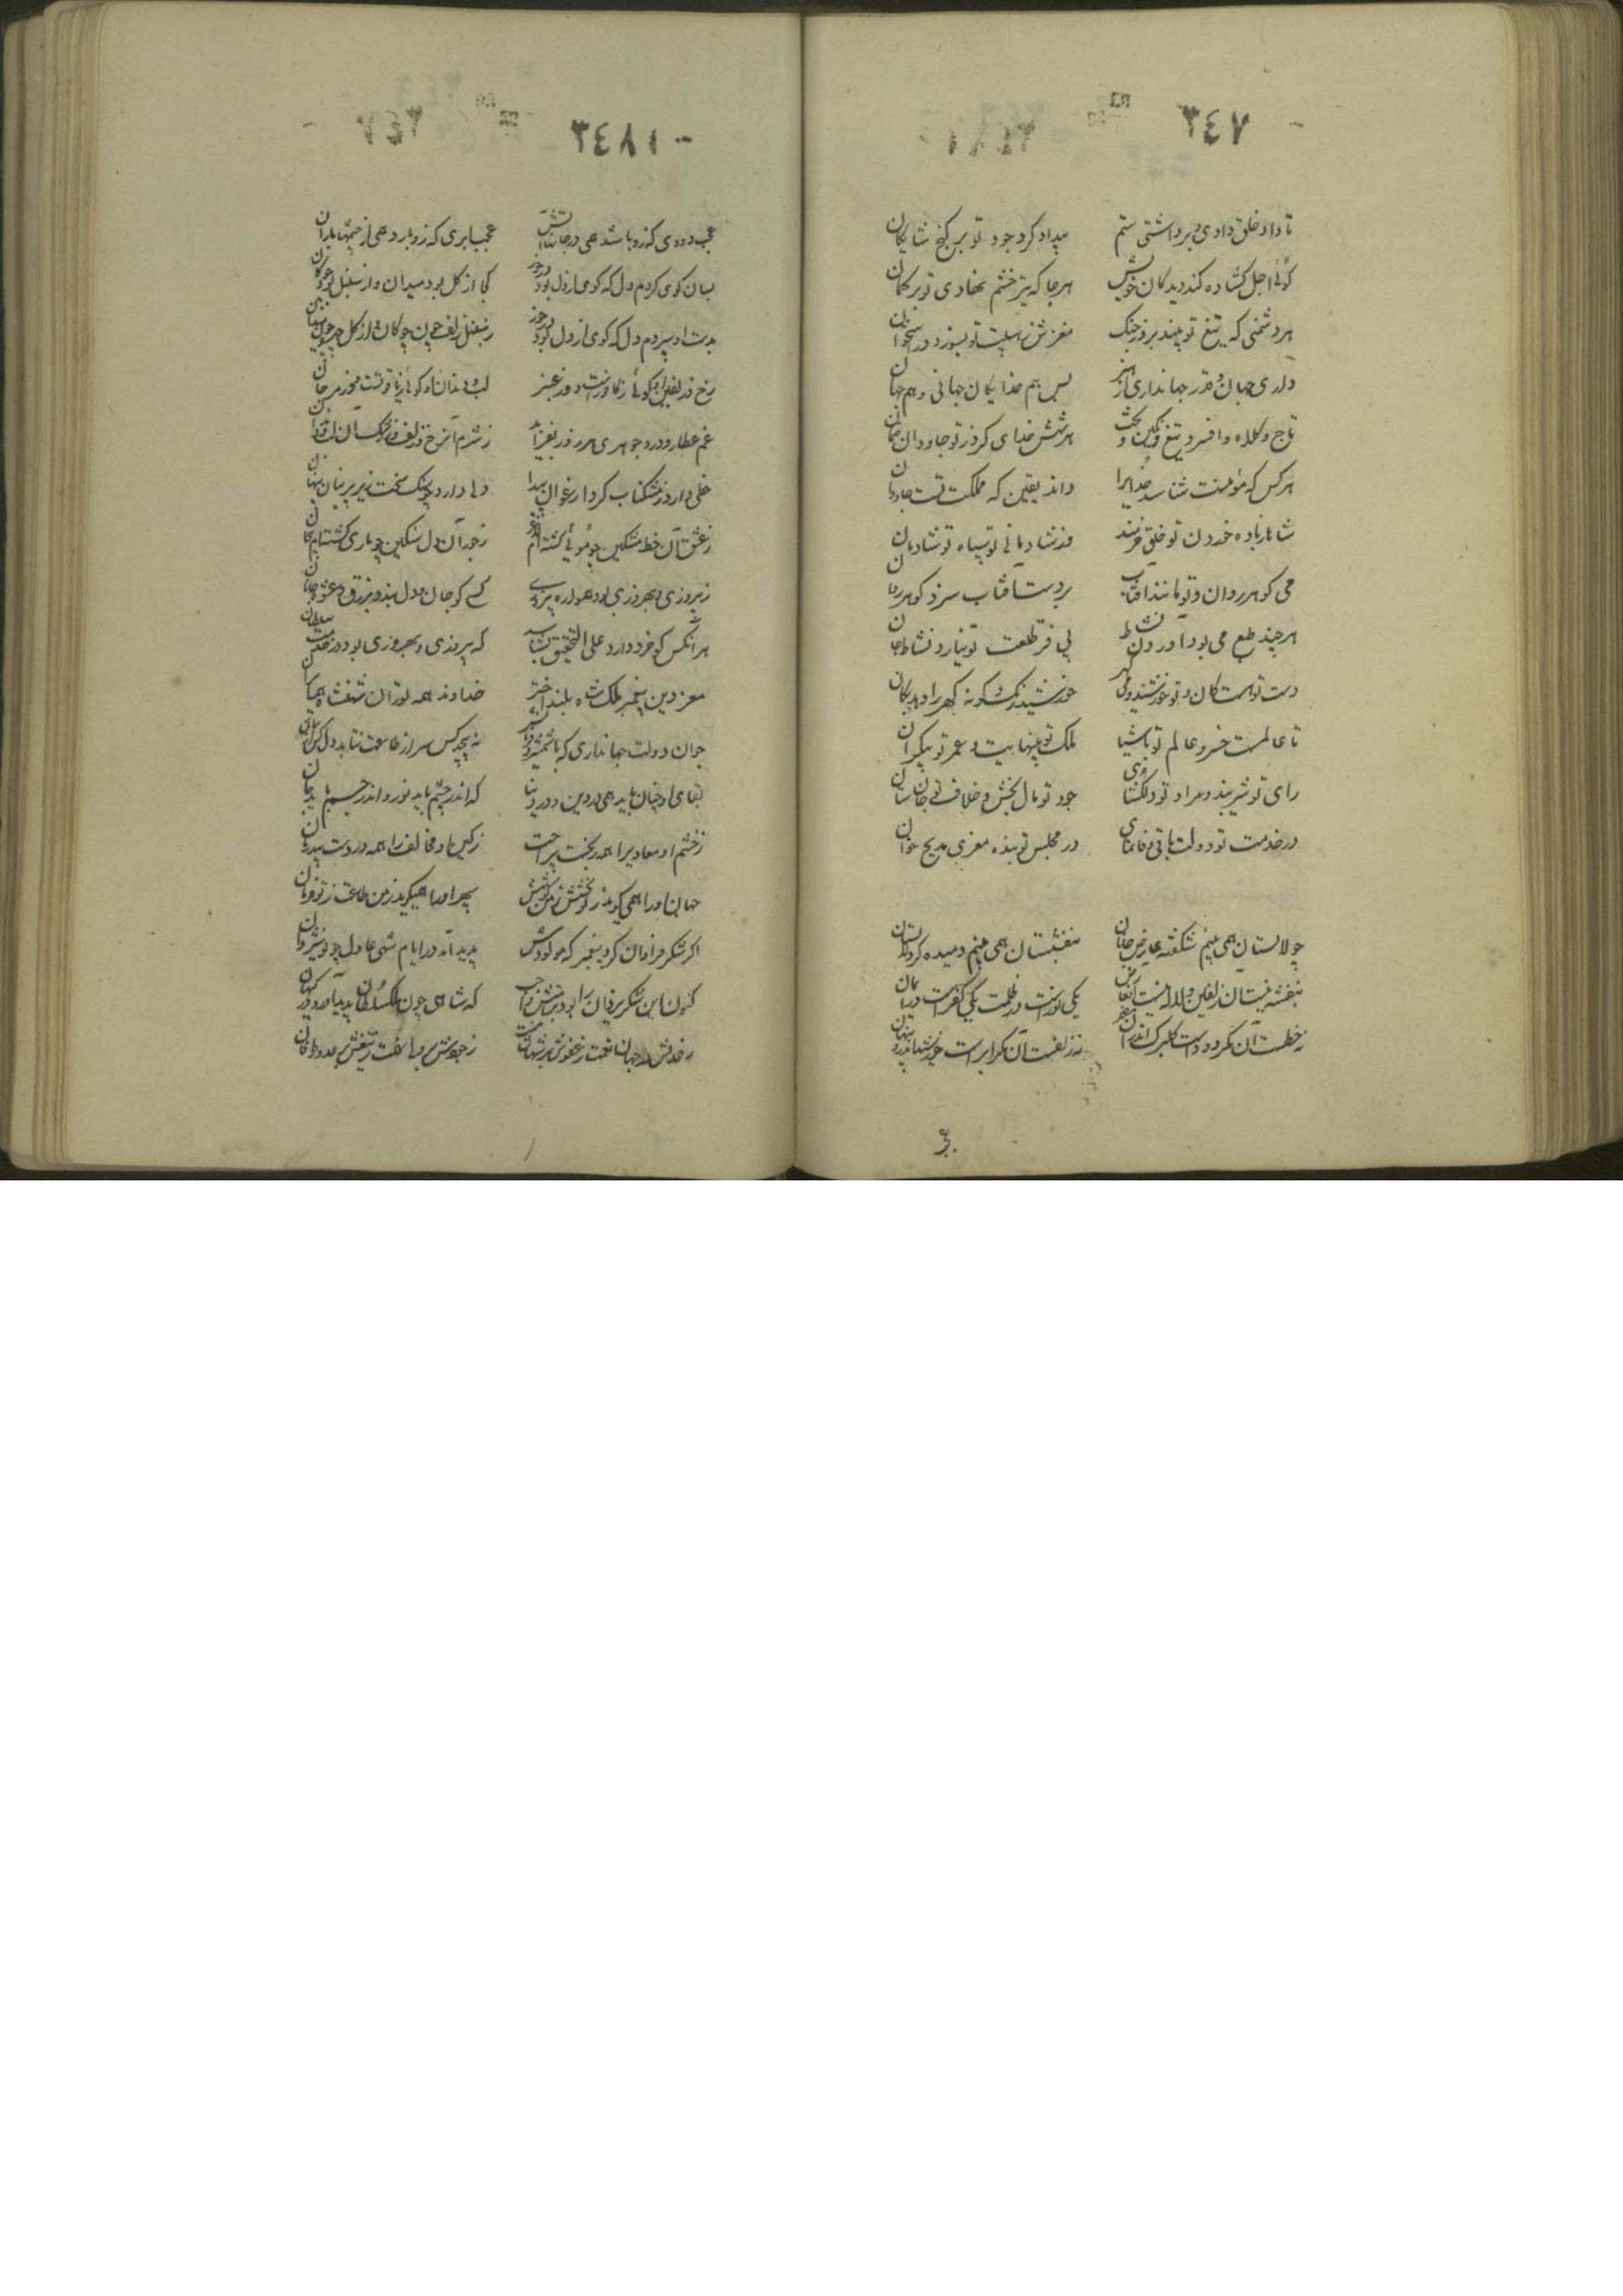 ٣٤٧
تا داد خلق دادی و برداشتی ستم بیداد کرد جود تو بر گنج شایگان
گوئی اجل گشاده کند دیدگان خویش هرجا که تیر خشم نهادی تو بر کمان
هر دشمنی که تیغ تو بیند بروز جنگ مغزش ز هیبت تو بسوزد در استخوان
داری جهان و قدر جهانداری از هنر بس هم خدایگان جهانی و هم جهان
تاج و کلاه و افسر و تیغ و نگین و تخت هر شش خدای کرد ز تو جاودان
هر کس که مؤمنست شناسد خدایرا داند یقین که مملکت تست جاودان
شاها بباده خوردن تو خلق خرمند وز شادمانی تو سپاه تو شادمان
می گوهر روان و تو مانند آفتاب بر دست آفتاب سزد گوهر روان
هر چند طبع می بود آوردن نشاط بی فر طلعت تو نیارد نشاط جان
دست تو هست کان و تو خورشیدی و گهر خورشید رنگ و گونه گهر را دهد بکان
تا عالمست خسرو عالم تو باشیا ملک تو بینهایت و عمر تو بیکران
رای تو شیر بند و مراد تو دلگشای جود تو مال بخش و خلاف تو جان ستان
در خدمت تو دولت باقی وفانمای در مجلس تو بنده معزی مدیح خوان
چو لالستان همی بینم شکفته عارض جانان بنفشستان همی بینم دمیده گرد لالستان
بنفشه نیست آن زلفین و لاله نیست آن عارض یکی نورست در ظلمت یکی کفرست در ایمان
نه خطست آن مگر دودست گلبرگ اندران مضمر نه زلفست آن مگر ابرست خورشید اندرو پنهان
٣٤٨١
عجب دودی که زو باشد همی در جانها آتش عجب ابری که زو بارد همی از چشمها باران
بسان گوی کردم دل که گوی از دل بود در خور کجا از گل بود میدان و از سنبل بود چوگان
بدست او سپردم دل که گوی از دل بود در خور ز سنبل زلف چون چوگان و از گل چهره چون میدان
رخ و زلفین او گوئی ز کافورست و از عنبر لب و دندان او گوئی ز یاقوتست و از مرجان
غم عطار و درد جوهری هر روز بفزاید ز شرم آن رخ و زلف و ز رشک آن لب و دندان
خطی دارد ز مشک ناب گرد ارغوان پیدا دلی دارد چو سنگ سخت زیر پرنیان پنهان
ز عشق آن خط مشکین چو موئی گشته‌ام ز جور آن دل سنگین چو ماری گشته‌ام پیچان
ز پیروزی و بهروزی بود همواره کسی کو جان و دل بندد
هر آنکس کو خرد دارد علی التحقیق بشناسد که پیروزی و بهروزی بود در خدمت سلطان
معز دین پیغمبر ملکشاه بلند اختر خداوند همه توران شهنشاه همه
جوان دولت جهانداری که با شمشیر و نه پیچد کس سر از طاعت نتابد دل کس از
بقای او چنان باید همی در دین و در دنیا که اندر چشم باید نور و اندر جسم باید جان
ز خشم او معادیرا همه رنجست بیراحت ز کین او مخالف را همه دردست بیدرمان
جهان او را همی گوید ز تو بخشش ز من کوشش سپهر او را همیگوید ز من طاعت ز تو فرمان
اگر شکر فراوان کرد پیغمبر که مولودش پدید آمد در ایام شهی عادل چو نوشروان
کنون این شکر یزدان را بود بر خلق واجب که شاهی چون ملک سلطان پدید آمد
ز جودش